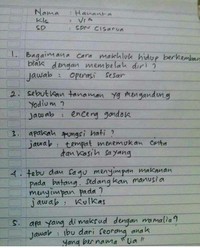 Nama : Hananta
Kls : VIA
SD : SDN Cisarua
1. Bagaimana cara makhluk hidup berkemban
biak dengan membelah diri?
jawab : operasi sesar
2. sebutkan tanaman yg mengandung
yodium?
jawab : enceng gondok
3. apakah fungsi hati?
jawab : tempat menemukan cinta
dan kasih sayang
4. tebu dan sagu menyimpan makanan
pada batang, sedangkan manusia
menyimpan pada?
jawab : kulkas
5. apa yang di maksud dengan mamalia?
jawab : ibu dari seorang anak
yang bernama "Lia"